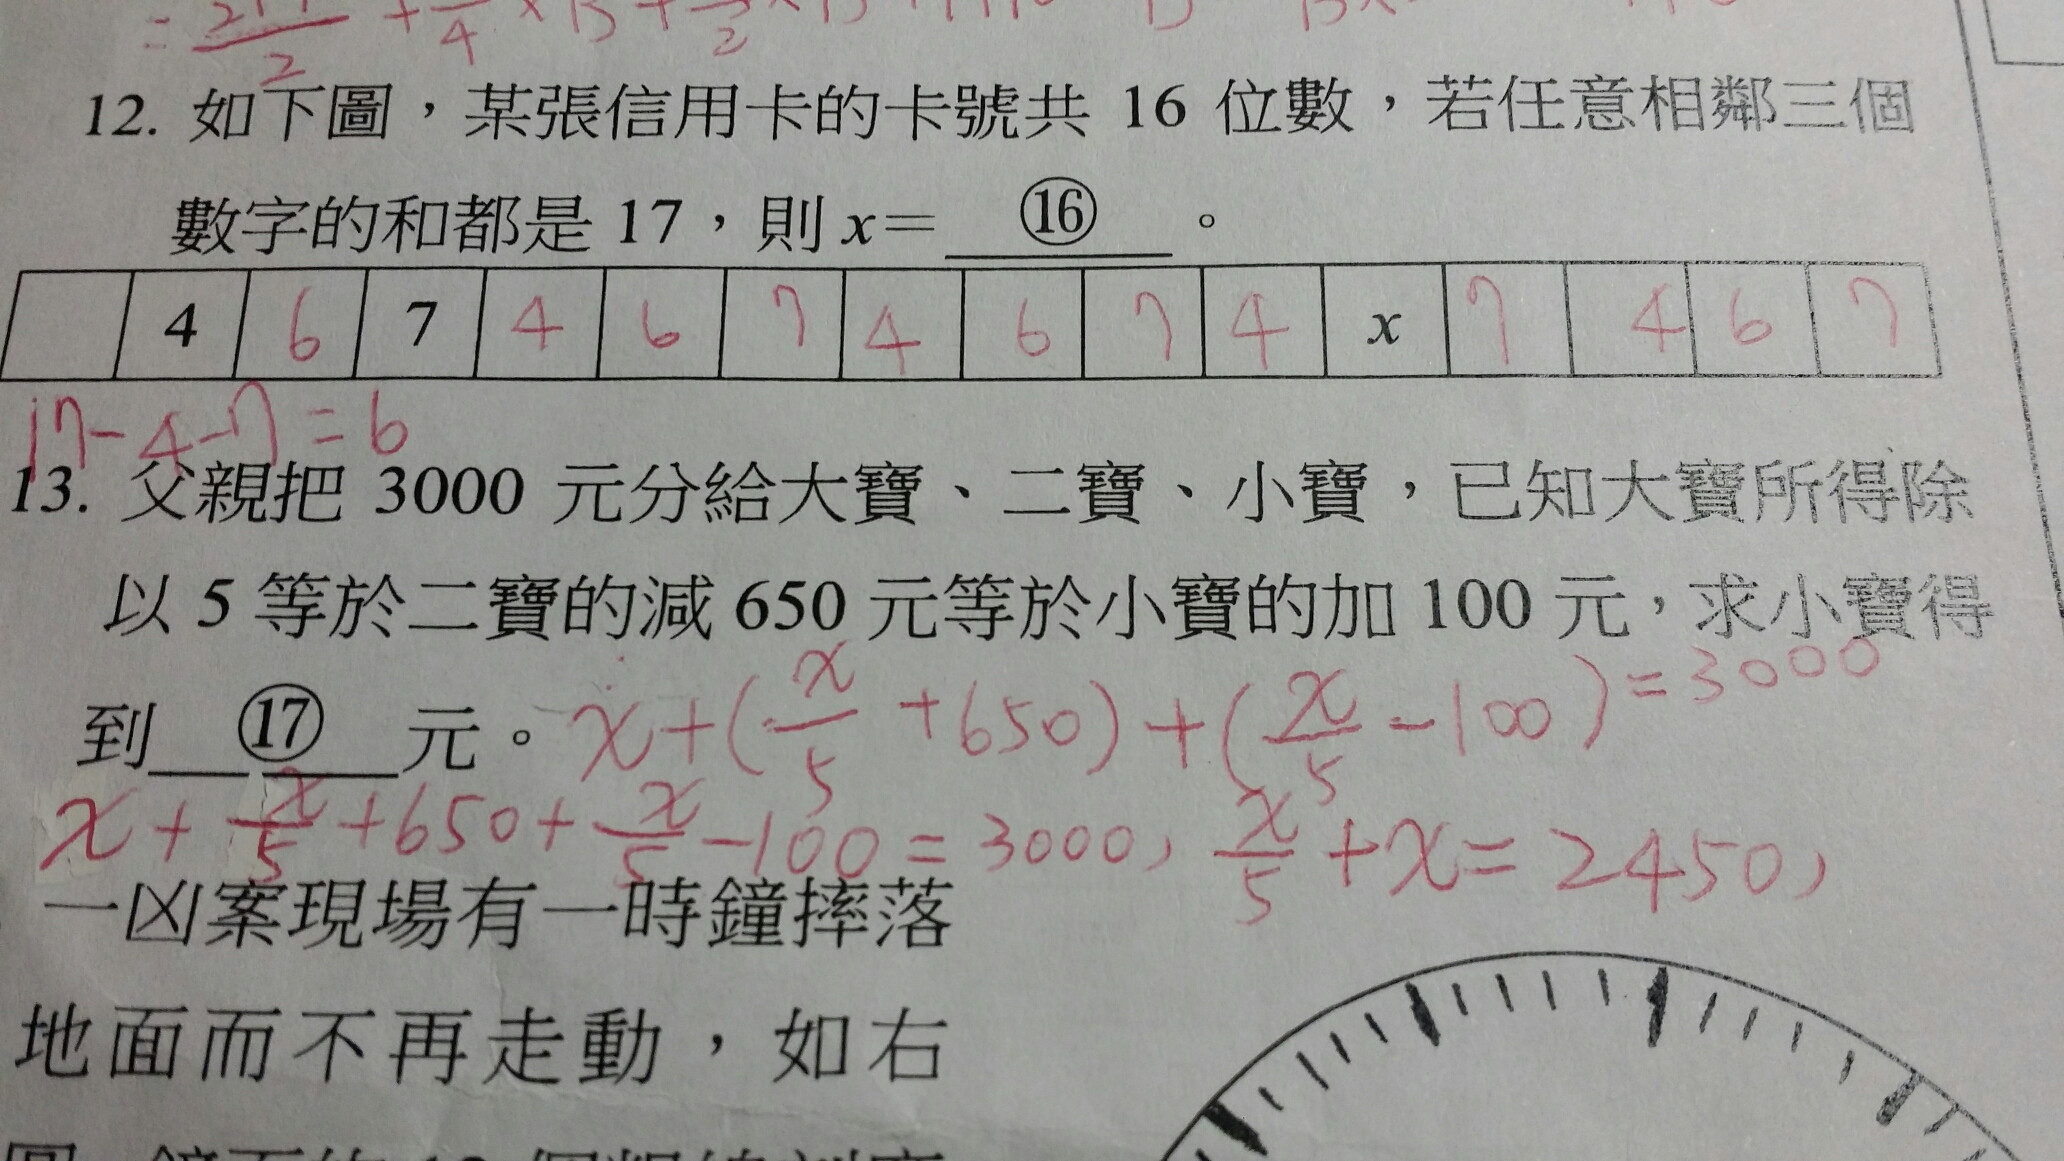 12. 如下圖，某張信用卡的卡號共 16 位數，若任意相鄰三個
數字的和都是 17，則 x＝ ⑯ 。
4 6 7 4 6 7 4 6 7 4 x 7 4 6 7
17-4-7=6
13. 父親把 3000 元分給大寶、二寶、小寶，已知大寶所得除
以 5 等於二寶的減 650 元等於小寶的加 100 元，求小寶得
到 ⑰ 元。 x+(x/5+650)+(x/5-100)=3000
x+x/5+650+x/5-100=3000, x/5+x=2450,
一凶案現場有一時鐘摔落
地面而不再走動，如右